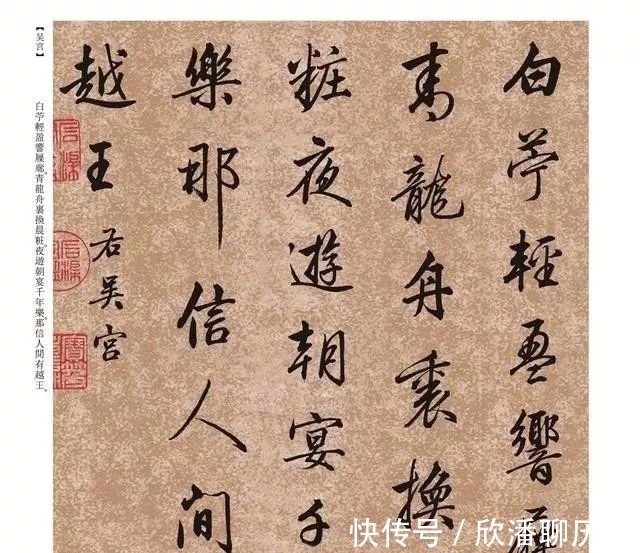 白苧輕盈響
青龍舟裏換
粧夜遊朝宴千
樂那信人間
越王
右吳宮
【吴宫】
白苧輕盈響屧廊。青龍舟裏換晨粧。夜遊朝宴千年樂。那信人間有越王。
快传号 / 欣潘聊历